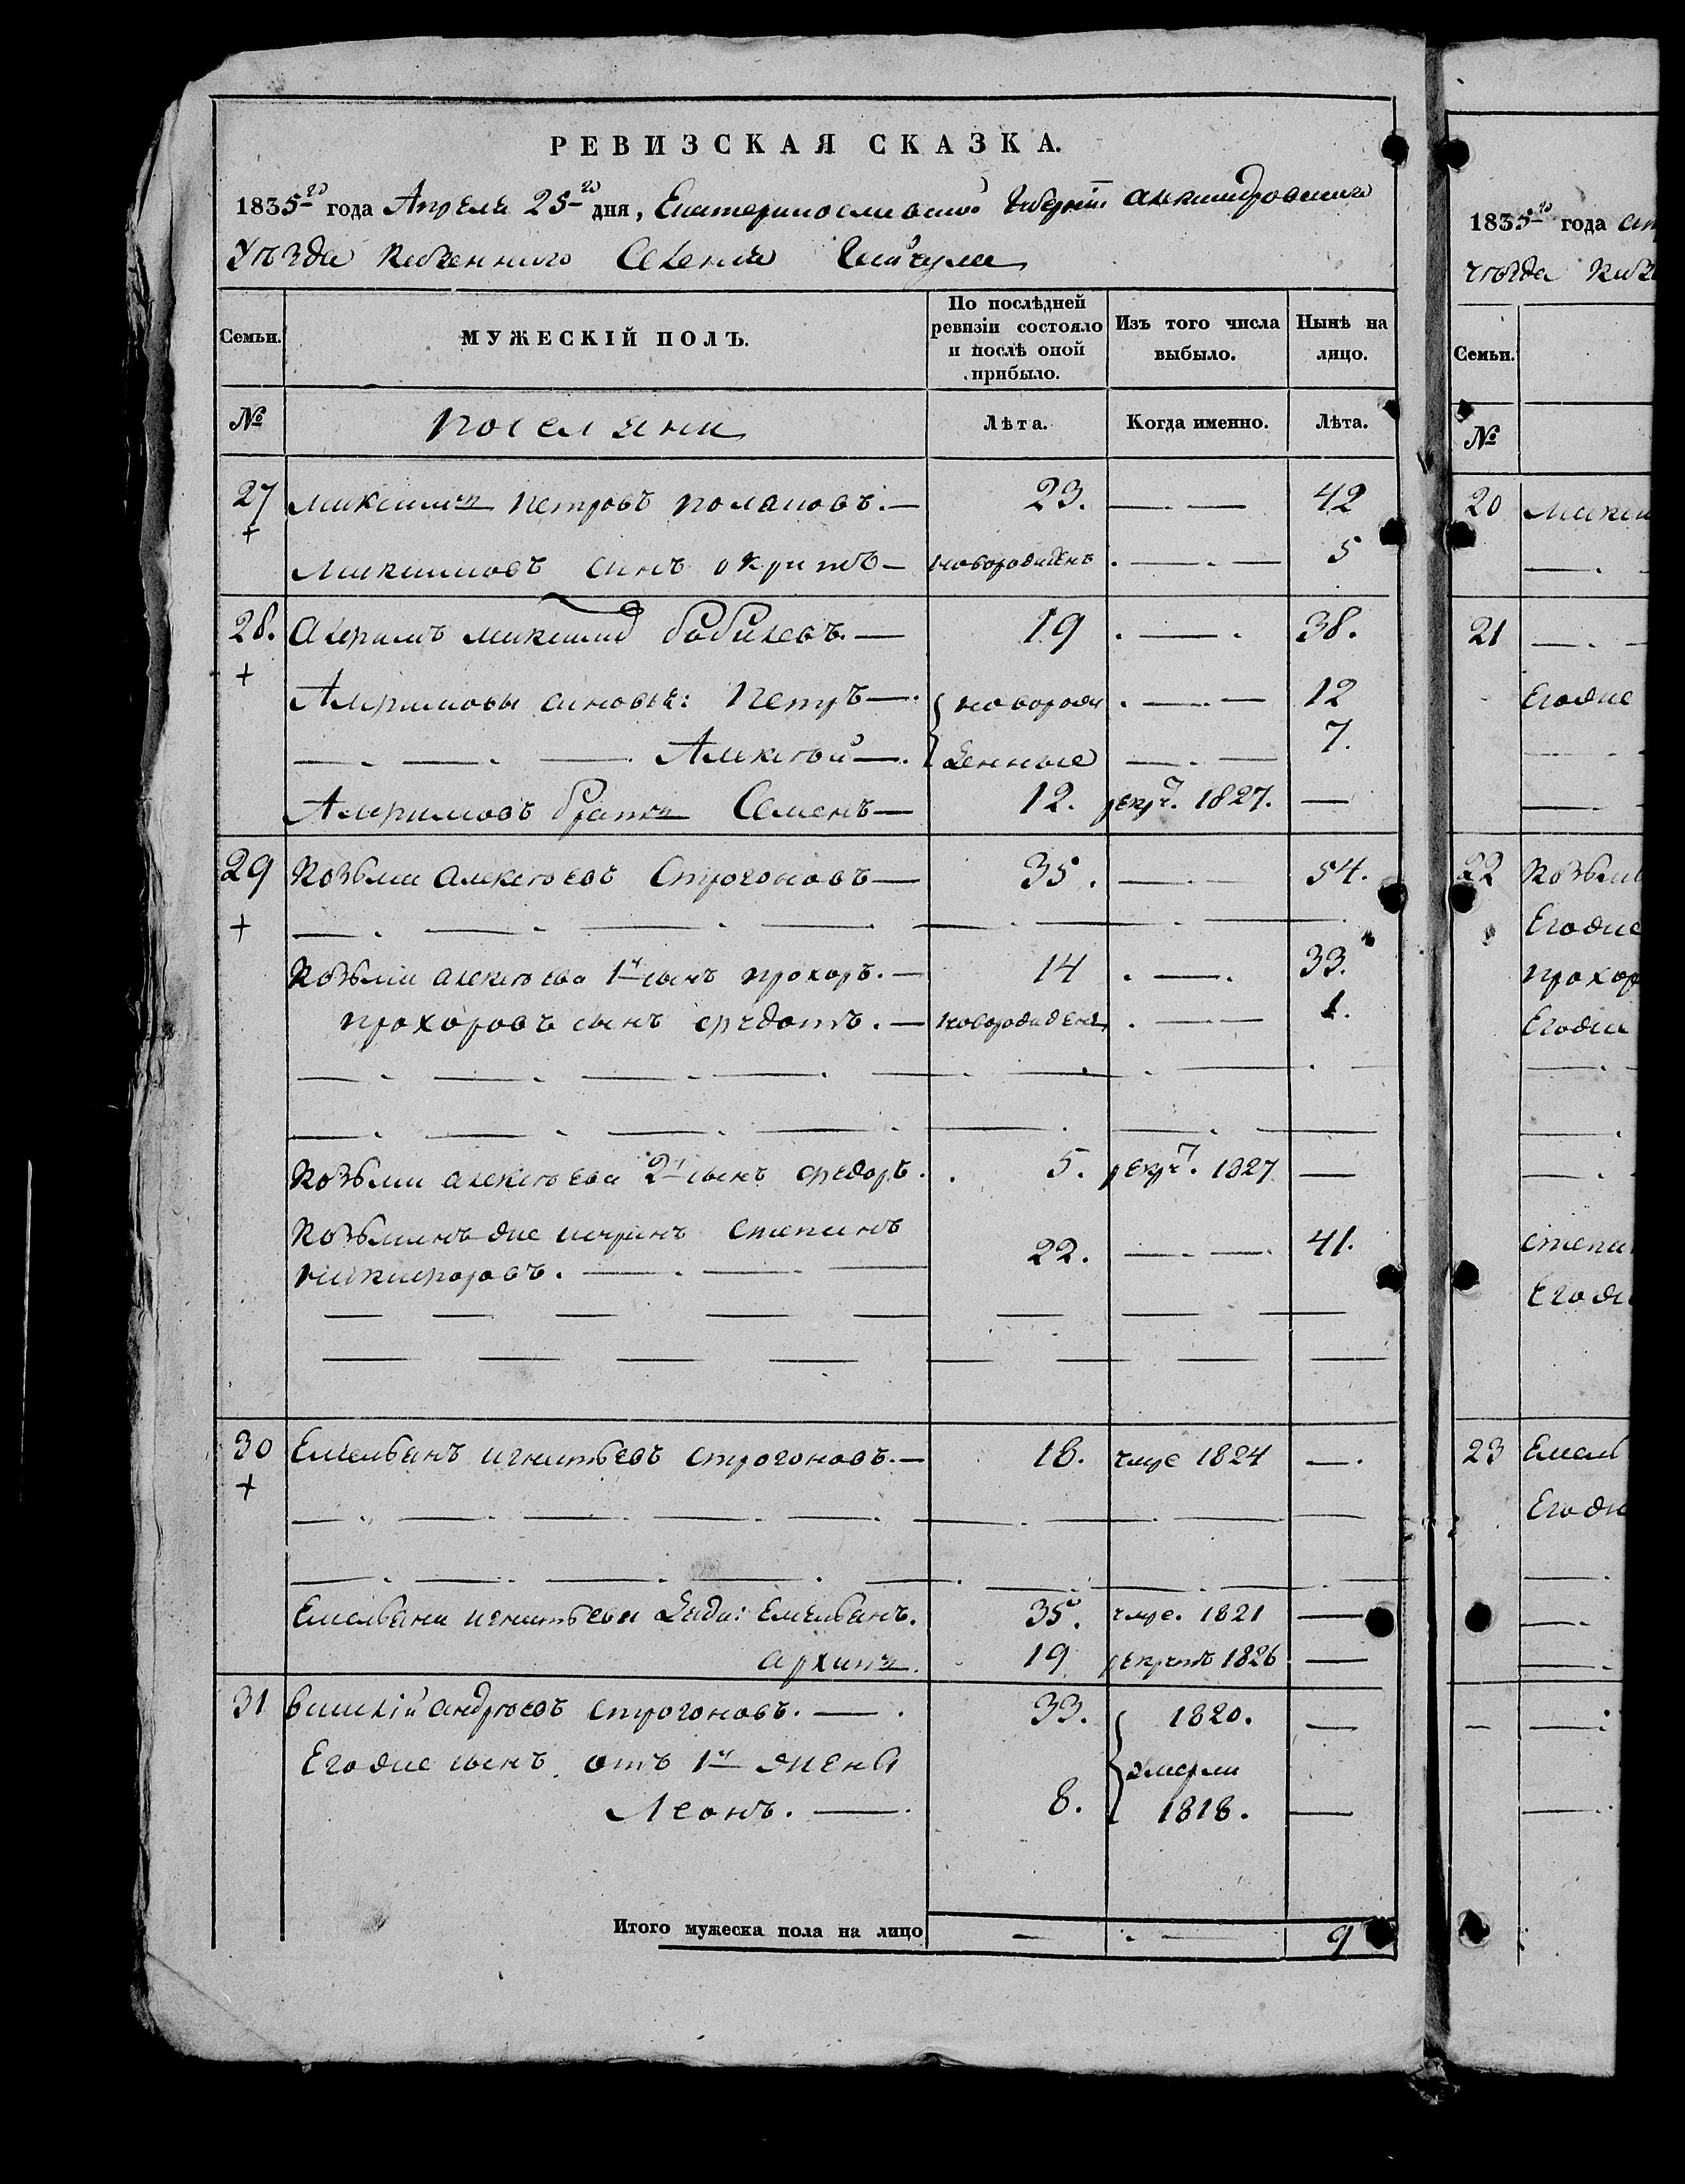 РЕВИЗСКАЯ СКАЗКА.
1835го года Апреля 25го дня, Екатеринославской Губерніи Александровскаго
Уѣзда Казеннаго Селенія Гайчула
Семьи.
МУЖЕСКІЙ ПОЛЪ.
По послѣдней ревизіи состояло и послѣ оной прибыло.
Изъ того числа выбыло.
Нынѣ на лицо.
№
поселяни
Лѣта.
Когда именно.
Лѣта.
27 Максимъ Петровъ — 23. — 42
Максимовъ синъ — новорожденъ — 5
28. Максимовъ Бабичевъ — 19 — 38.
синовья: Петръ — новорож — 12
Алексѣй — денные — 7.
братъ Семенъ — 12. рекру. 1827. —
29 Козьма Алексѣевъ Строгоновъ — 35. — 54.
Козьми Алексѣева 1й сынъ Прохоръ. — 14 — 33.
Прохоровъ сынъ Федотъ. — новорожденъ — 1.
Козьми Алексѣева 2й сынъ Федоръ. 5. рекру. 1827 —
Козьминъ же Степанъ
Никифоровъ. — 22. — 41.
30 Емельянъ Игнатьевъ Строгоновъ. — 18. умре 1824 —
Емельяна Игнатьева дяди: Емельянъ. 35. умре. 1821 —
Архипъ. 19 рекрутъ 1826 —
31 Василій Андреевъ Строгоновъ. — 33. 1820. —
Егоже сынъ отъ 1й жены умерли
Леонъ. — 8. 1818. —
Итого мужеска пола на лицо — — 9
1835го года
уѣзда
Семьи.
№
20
21
Егоже
22
Егоже
Прохор
Егоже
Степа
Егоже
23 Емель
Егоже